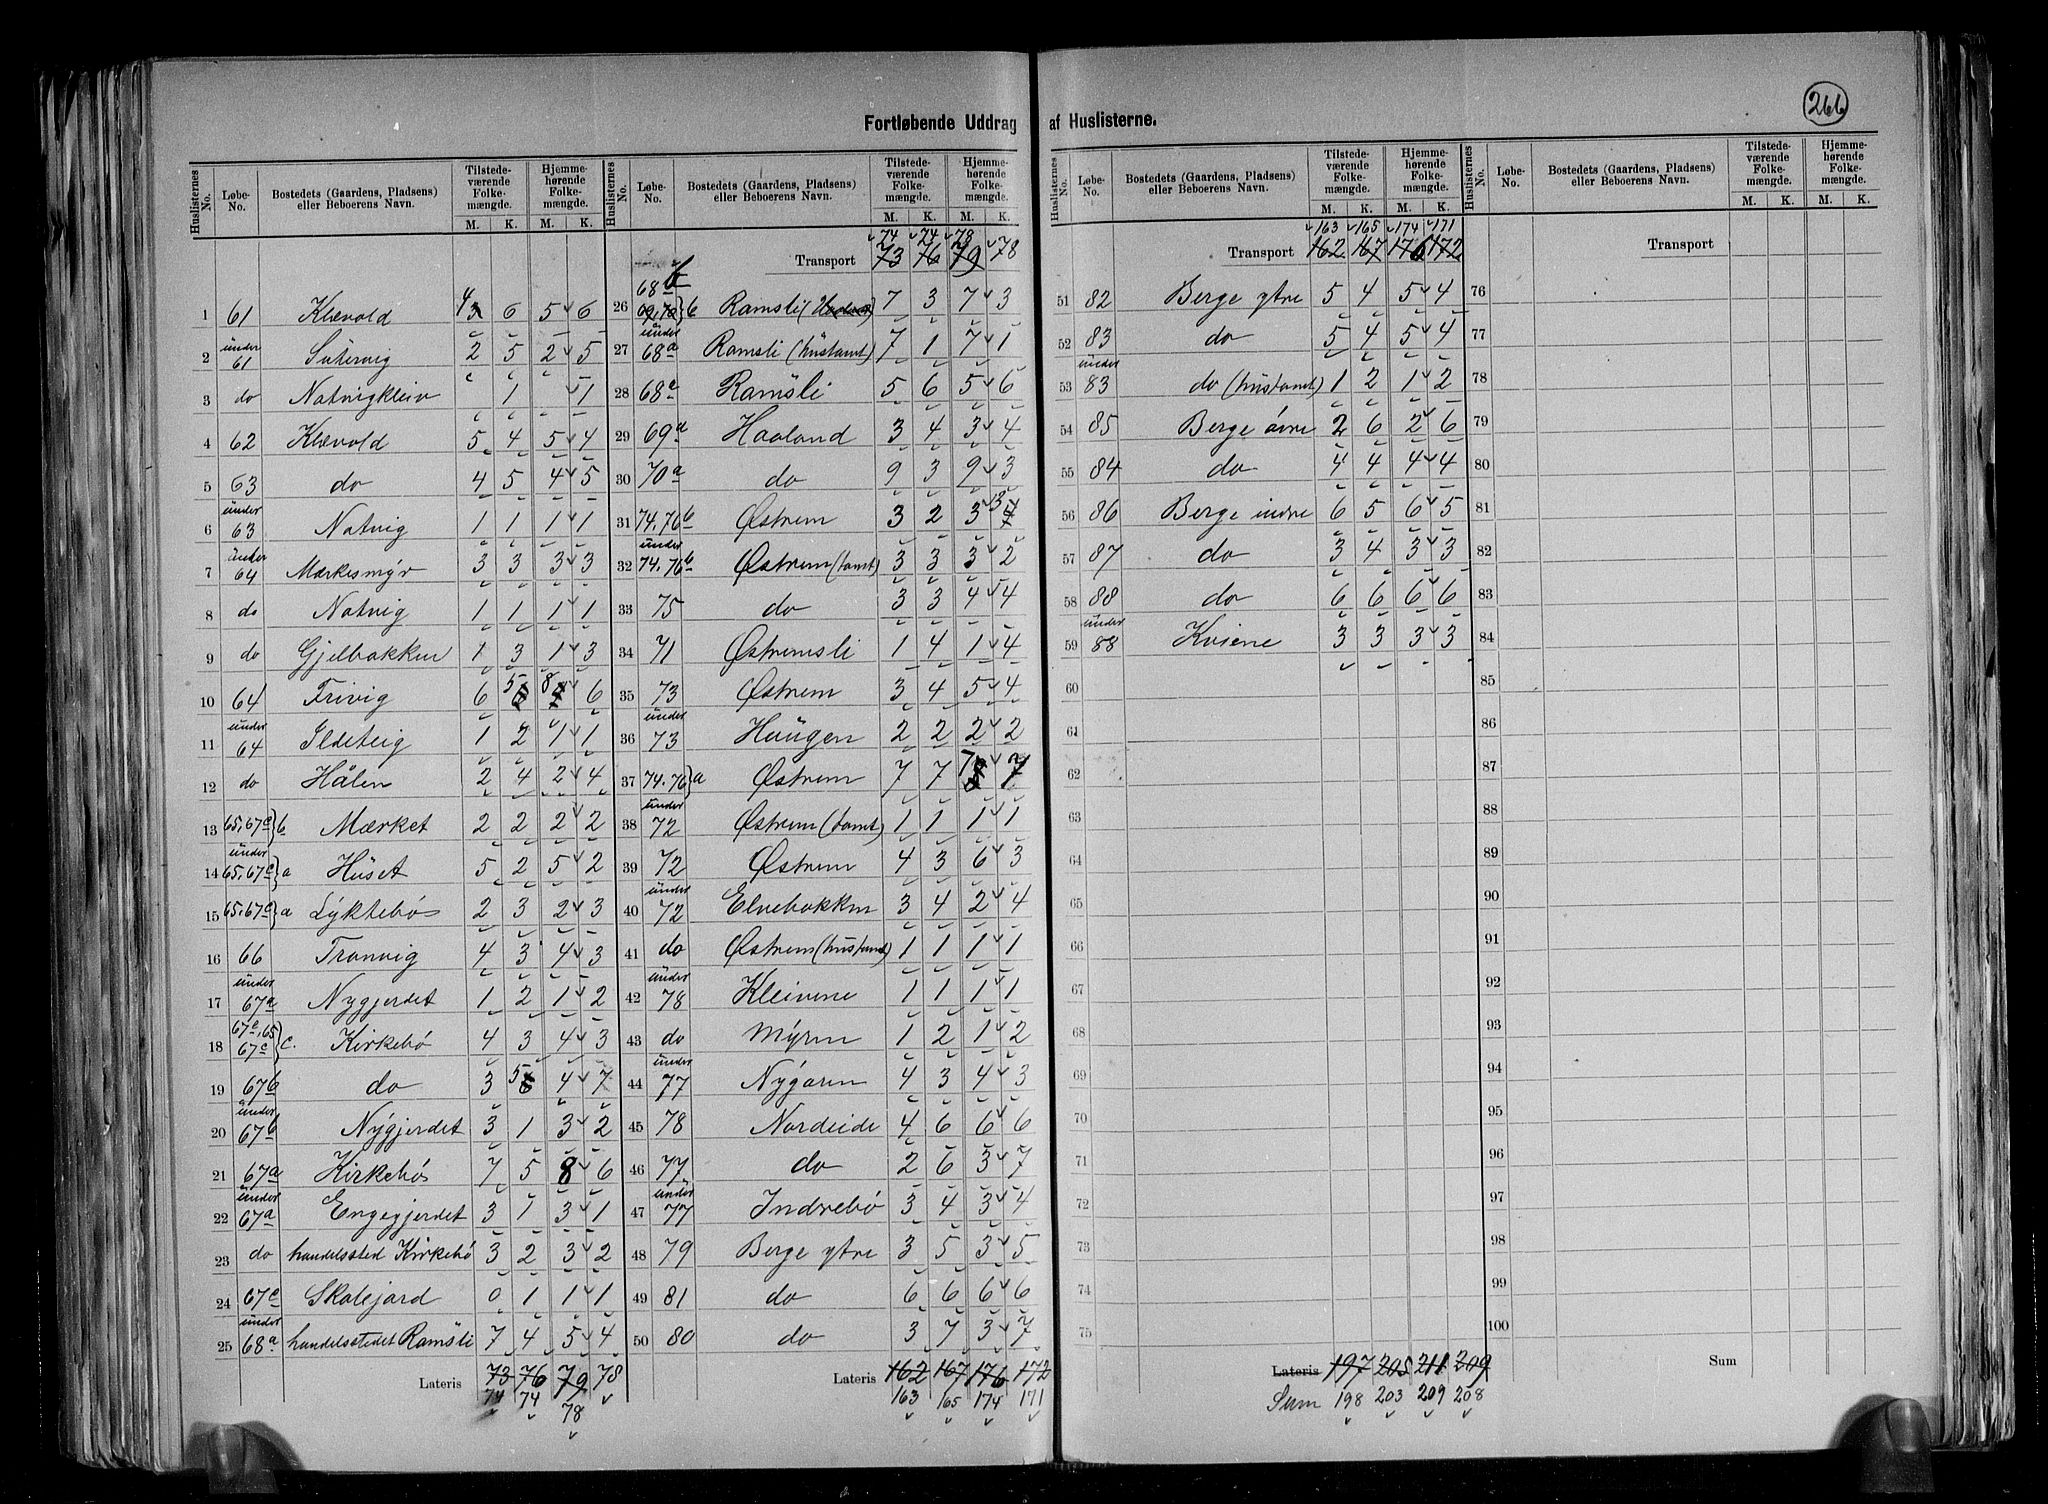 266
Fortløbende Uddrag af Huslisterne.
Huslisternes No. | Løbe-No. | Bostedets (Gaardens, Pladsens) eller Beboerens Navn. | Tilstedeværende Folkemængde. M. K. | Hjemmehørende Folkemængde. M. K.
1 61 Klævold 4 6 5 6
2 under 61 2 5 2 5
3 do Natvigkleiv 1 1
4 62 Klævold 5 4 5 4
5 63 do 4 5 4 5
6 under 63 Natvig 1 1 1 1
7 under 64 Mærkesmyr 3 3 3 3
8 do Natvig 1 1 1 1
9 do Gjelbakken 1 3 1 3
10 64 Trivig 6 5 8 6
11 under 64 Ildeteig 1 2 1 1
12 do Hålen 2 4 2 4
13 65, 67c } b Mærket 2 2 2 2
14 under 65, 67c } a Huset 5 2 5 2
15 65, 67c } a Lyktebø 2 3 2 3
16 66 Tranvig 4 3 4 3
17 under 67a Nygjerdet 1 2 1 2
18 67c, 65 67c } c. Kirkebø 4 3 4 3
19 67b do 3 5 4 7
20 under 67b Nygjerdet 3 1 3 2
21 67a Kirkebø 7 5 8 6
22 under 67a Engegjerdet 3 1 3 1
23 do handelssted Kirkebø 3 2 3 2
24 67c Skolejord 0 1 1 1
25 under 68a handelsstedet Ramsli 7 4 5 4
Lateris 73 76 79 78
74 74 78
Huslisternes No. | Løbe-No. | Bostedets (Gaardens, Pladsens) eller Beboerens Navn. | Tilstedeværende Folkemængde. M. K. | Hjemmehørende Folkemængde. M. K.
74 74 78
Transport 73 76 79 78
26 68b Ramsli 7 3 7 3
27 under 68a Ramsli (husstamt) 7 1 7 1
28 68a Ramsli 5 6 5 6
29 69a Haaland 3 4 3 4
30 70a do 9 3 9 3
31 74, 76b Østrem 3 2 3
32 under 74, 76b Østrem (tomt) 3 3 3 2
33 75 do 3 3 4 4
34 71 Østremsli 1 4 1 4
35 73 Østrem 3 4 5 4
36 under 73 Haugen 2 2 2 2
37 74, 76 } a Østrem 7 7 7 7
38 under 72 Østrem (tomt) 1 1 1 1
39 72 Østrem 4 3 6 3
40 under 72 Elvebakken 3 4 2 4
41 do Østrem (hustomt) 1 1 1 1
42 under 78 Kleivene 1 1 1 1
43 do Myren 1 2 1 2
44 under 77 Nygaren 4 3 4 3
45 78 Nordeide 4 6 6 6
46 77 do 2 6 3 7
47 under 77 Indrebø 3 4 3 4
48 79 Berge ytre 3 5 3 5
49 81 do 6 6 6 6
50 80 do 3 7 3 7
Lateris 162 167 176 172
163 165 174 171
Huslisternes No. | Løbe-No. | Bostedets (Gaardens, Pladsens) eller Beboerens Navn. | Tilstedeværende Folkemængde. M. K. | Hjemmehørende Folkemængde. M. K.
163 165 174 171
Transport 162 167 176 172
51 82 Berge ytre 5 4 5 4
52 83 do 5 4 5 4
53 under 83 do (hustomt) 1 2 1 2
54 85 Berge øvre 2 6 2 6
55 84 do 4 4 4 4
56 86 Berge indre 6 5 6 5
57 87 do 3 4 3 3
58 88 do 6 6 6 6
59 under 88 Kviene 3 3 3 3
60
61
62
63
64
65
66
67
68
69
70
71
72
73
74
75
Lateris 197 205 211 209
Sum 198 203 209 208
Huslisternes No. | Løbe-No. | Bostedets (Gaardens, Pladsens) eller Beboerens Navn. | Tilstedeværende Folkemængde. M. K. | Hjemmehørende Folkemængde. M. K.
Transport
76
77
78
79
80
81
82
83
84
85
86
87
88
89
90
91
92
93
94
95
96
97
98
99
100
Sum